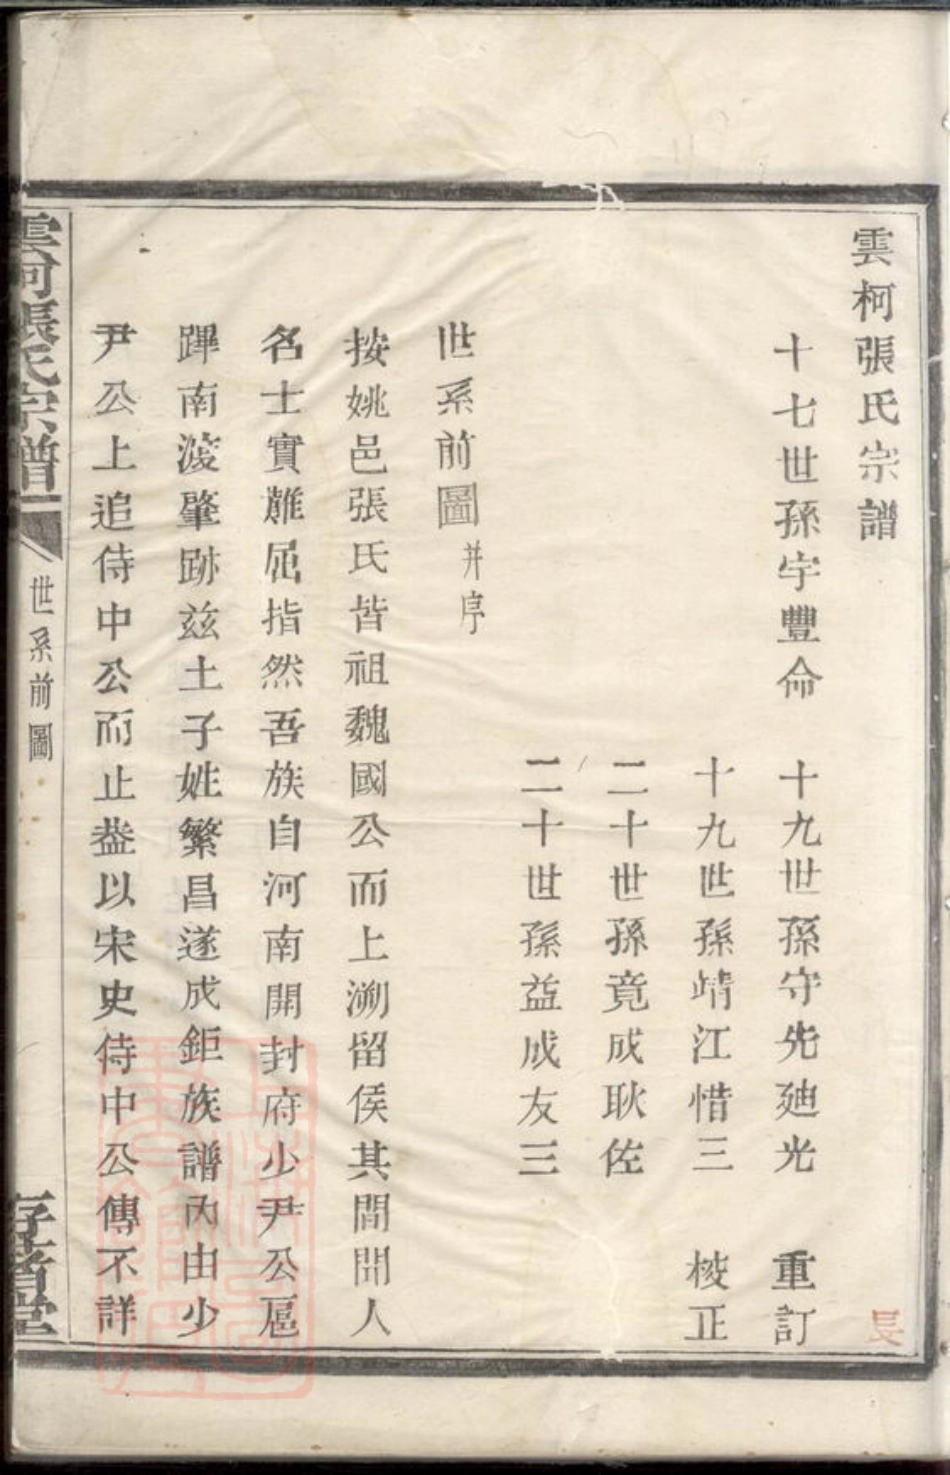 雲柯張氏宗譜
十七世孫宇豐命 十九世孫守先廸光 重訂
十九世孫靖江惜三 棱正
二十世孫竟成耿佐
二十世孫益成友三
世系前圖 并序
按姚邑張氏皆祖魏國公而上溯留侯其間聞人
名士實難屈指然吾族自河南開封府少尹公扈
蹕南渡肇跡兹土子姓繁昌遂成鉅族譜內由少
尹公上追侍中公而止盖以宋史侍中公傳不詳
雲柯張氏宗譜 世系前圖 存著堂